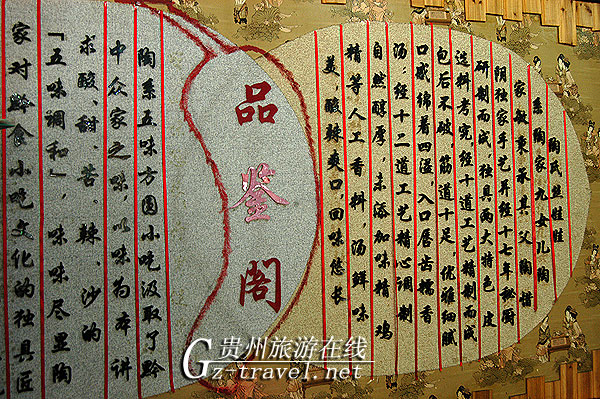 陶氏丝娃娃
系陶家九女儿陶
家敏秉承其父陶惜
朝独家手艺并经十七年秘厨
研制而成，独具两大特色皮
选料考究，经十道工艺精制而成
包后不破，筋道十足，优雅细腻
口感绵着四溢，入口唇齿糯香
汤：经十二道工艺精心调制
自然醇厚，未添加味精鸡
精等人工香料，汤鲜味
美，酸辣爽口，回味悠长
品鉴阁
陶系五味方圆小吃汲取了黔
中众家之味，以味为本讲
求酸、甜、苦、辣、沙的
『五味调和』，味味尽显陶
家对黔食小吃文化的独具匠
贵州旅游在线
Gz-travel.net